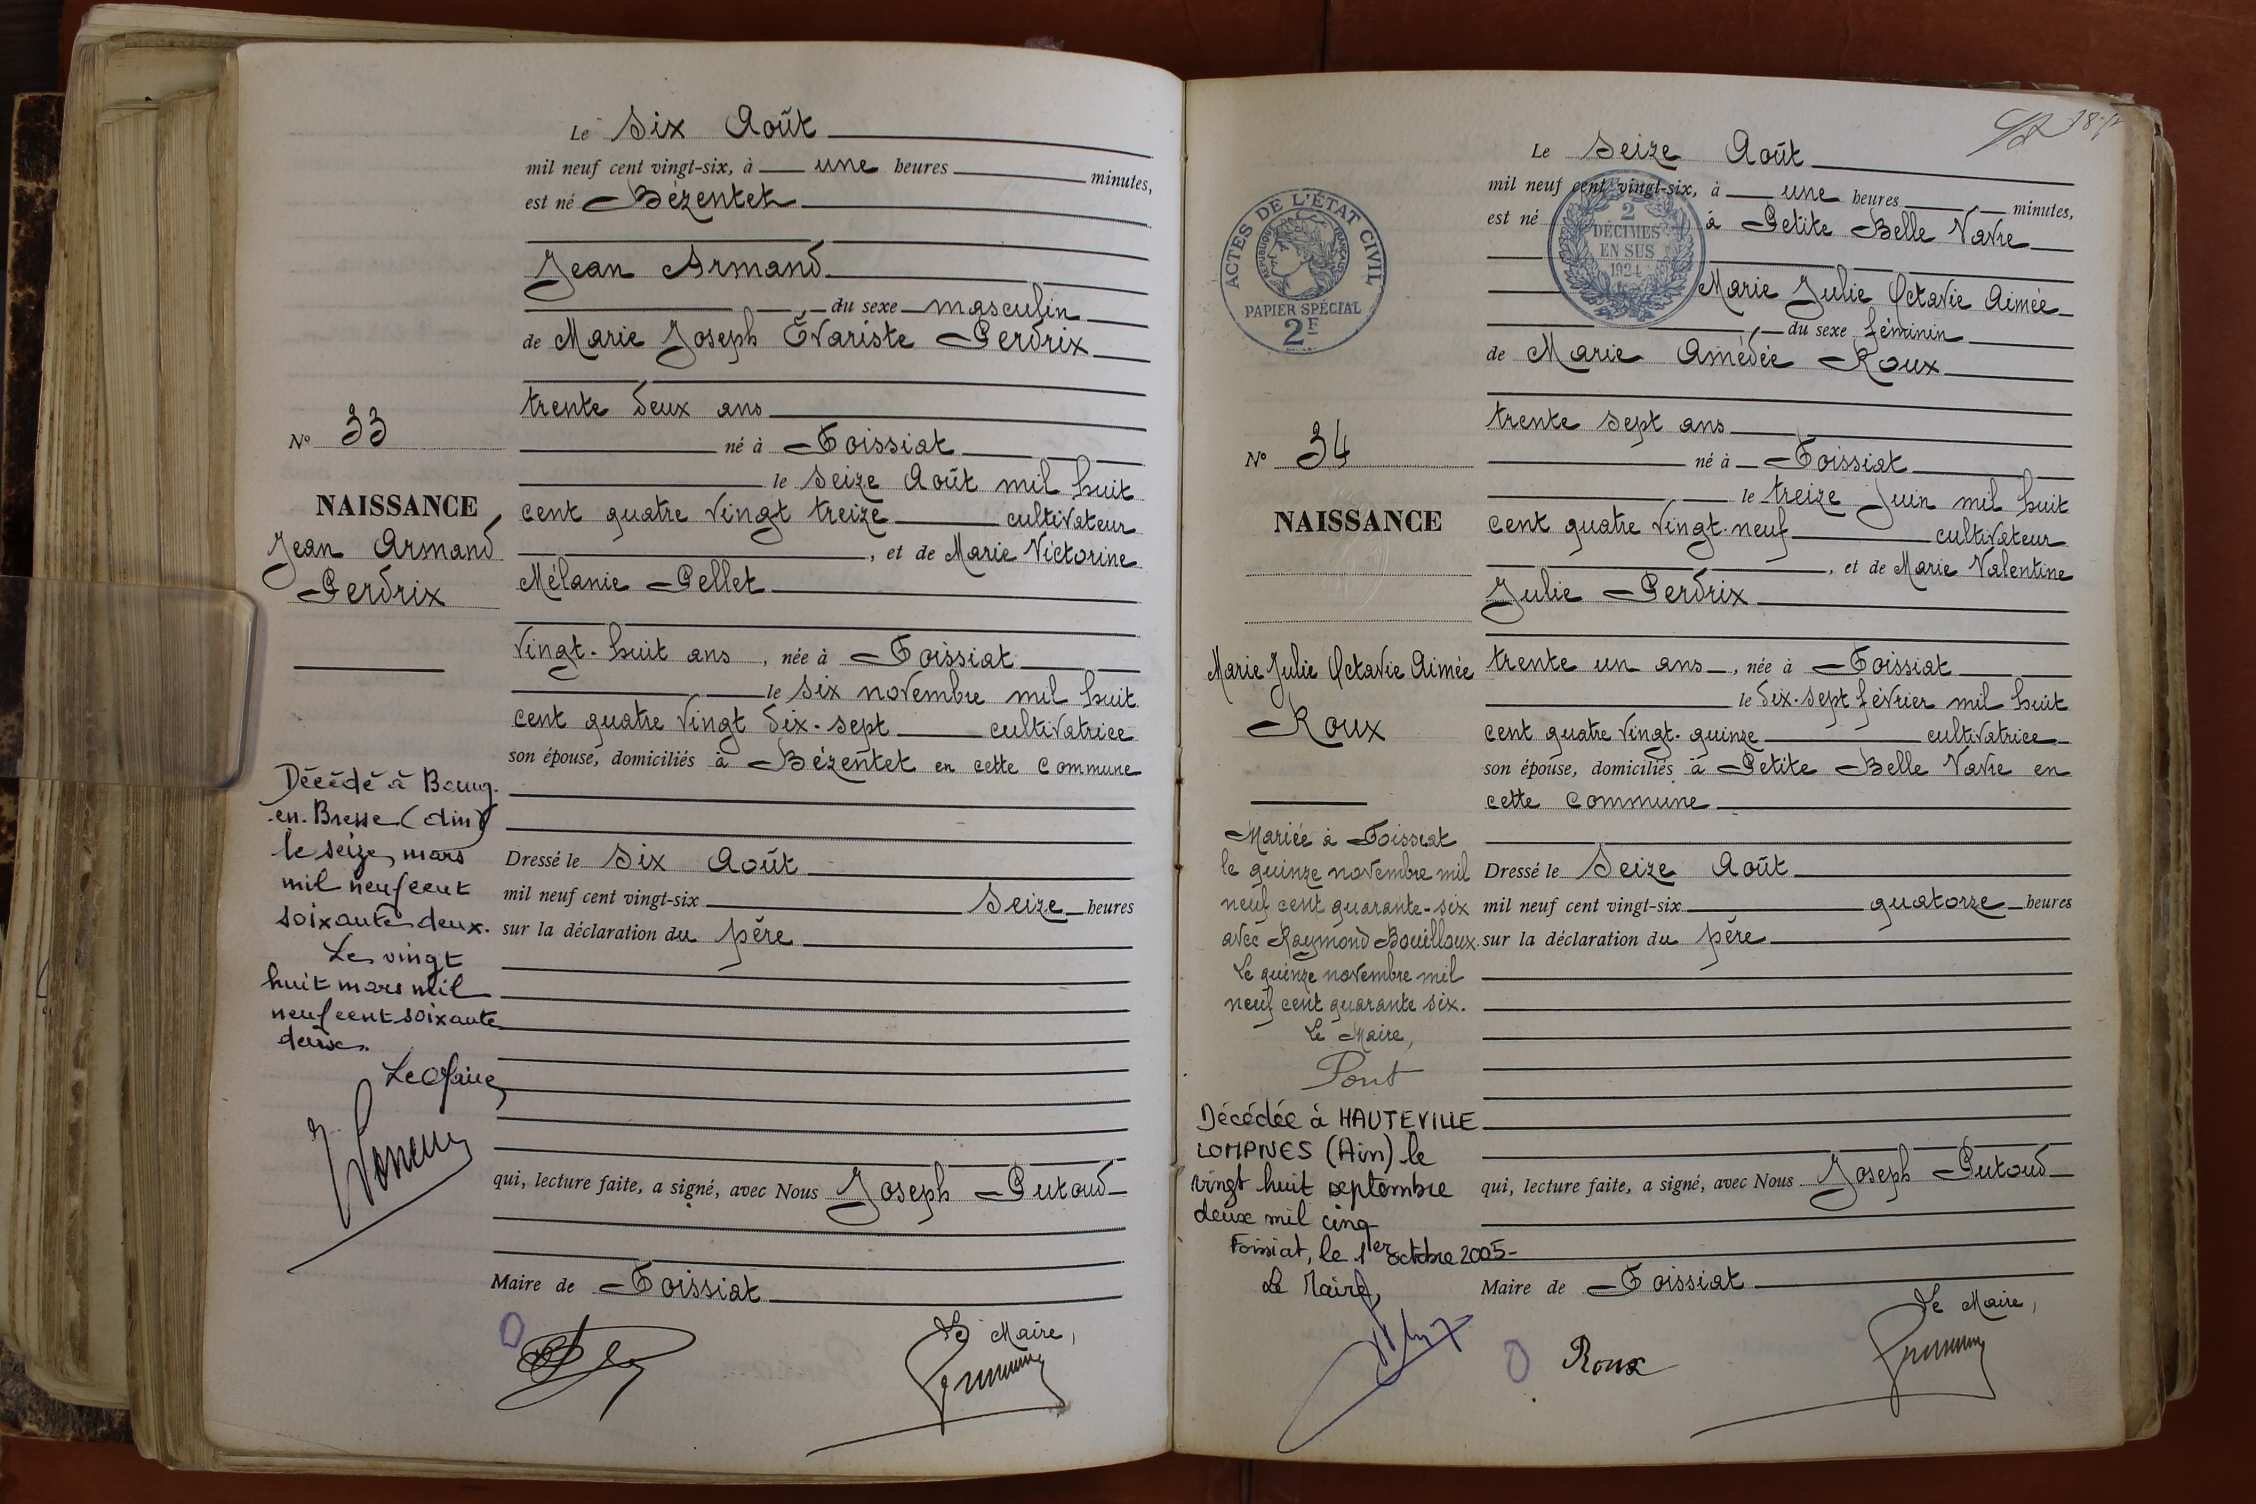 Le Six Août
mil neuf cent vingt-six, à une heures minutes,
est né Bézentet
Jean Armand
du sexe masculin
de Marie Joseph Évariste Perdrix
trente deux ans
né à Foissiat
le seize Août mil huit
cent quatre vingt treize cultivateur
, et de Marie Victorine
Mélanie Pellet
vingt-huit ans, née à Foissiat
le six novembre mil huit
cent quatre vingt dix-sept cultivatrice
son épouse, domiciliés à Bézentet en cette commune
Dressé le Six Août
mil neuf cent vingt-six Seize heures
sur la déclaration du père
qui, lecture faite, a signé, avec Nous Joseph Putoud
Maire de Foissiat
Le Maire,
No 33
NAISSANCE
Jean Armand
Perdrix
Décédé à Bourg-
en-Bresse (Ain)
le seize mars
mil neuf cent
soixante deux.
Le vingt
huit mars mil
neuf cent soixante
deux.
Le Maire,
Le Seize Août
mil neuf cent vingt-six, à une heures minutes,
est né à Petite Belle Vavre
Marie Julie Octavie Aimée
du sexe féminin
de Marie Amédée Roux
trente sept ans
né à Foissiat
le treize Juin mil huit
cent quatre vingt-neuf cultivateur
, et de Marie Valentine
Julie Perdrix
trente un ans, née à Foissiat
le dix-sept février mil huit
cent quatre vingt-quinze cultivatrice
son épouse, domiciliés à Petite Belle Vavre en
cette commune
Dressé le Seize Août
mil neuf cent vingt-six quatorze heures
sur la déclaration du père
qui, lecture faite, a signé, avec Nous Joseph Putoud
Maire de Foissiat
Le Maire,
Roux
ACTES DE L'ÉTAT CIVIL
RÉPUBLIQUE FRANÇAISE
PAPIER SPÉCIAL
2F
2
DÉCIMES
EN SUS
1924
No 34
NAISSANCE
Marie Julie Octavie Aimée
Roux
Mariée à Foissiat
le quinze novembre mil
neuf cent quarante-six
avec Raymond Bouilloux.
Le quinze novembre mil
neuf cent quarante six.
Le Maire,
Pont
Décédée à HAUTEVILLE
LOMPNES (Ain) le
vingt huit septembre
deux mil cinq
Foissiat, le 1er octobre 2005-
Le Maire,